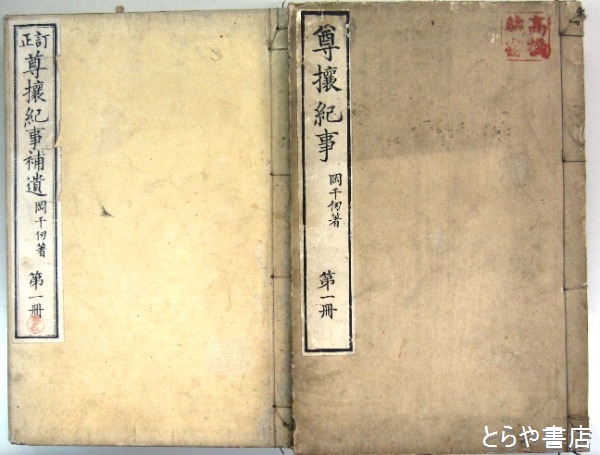 尊攘紀事
岡千仞著
第一冊
訂正
尊攘紀事補遺
岡千仞著
第一冊
とらや書店